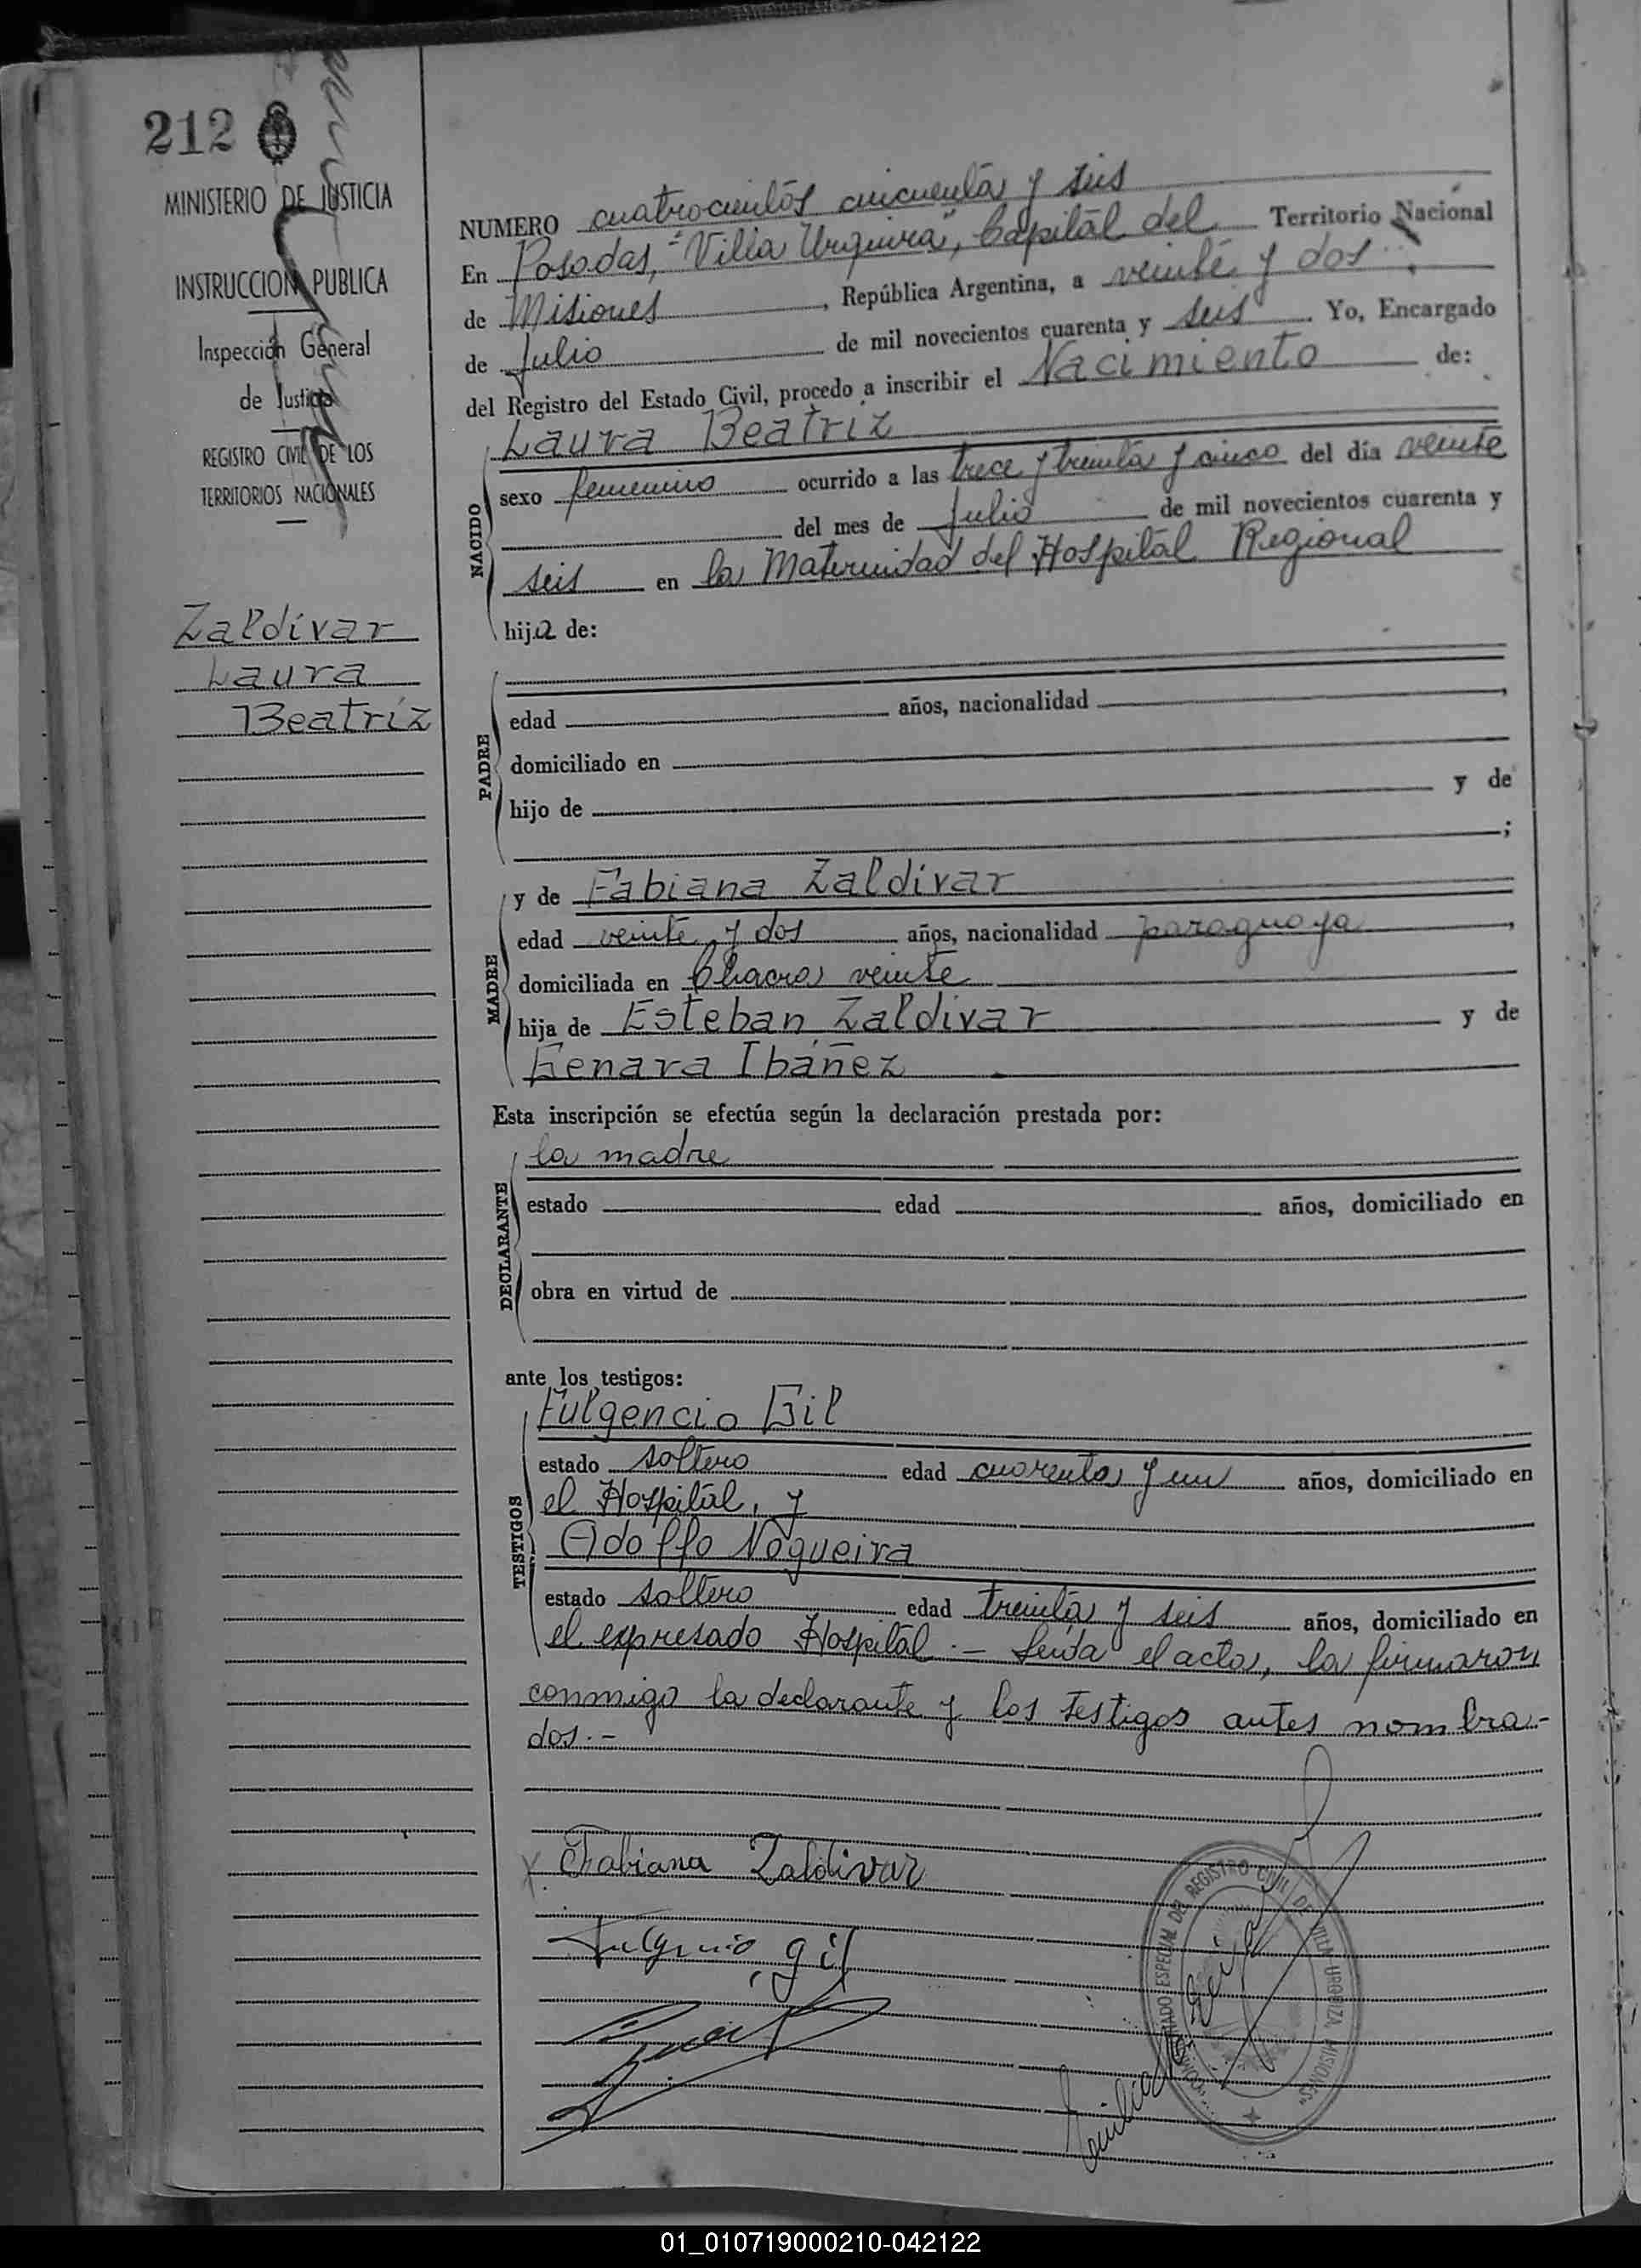 212
MINISTERIO DE JUSTICIA
INSTRUCCION PUBLICA
Inspección General
de Justicia
REGISTRO CIVIL DE LOS
TERRITORIOS NACIONALES
Zaldívar
Laura
Beatríz
NUMERO cuatrocientos cincuenta y seis
En Posadas, "Villa Urquiza", Capital del Territorio Nacional
de Misiones, República Argentina, a veinte y dos
de Julio de mil novecientos cuarenta y seis. Yo, Encargado
del Registro del Estado Civil, procedo a inscribir el Nacimiento de:
NACIDO
Laura Beatriz
sexo femenino ocurrido a las trece y treinta y cinco del día veinte
del mes de Julio de mil novecientos cuarenta y
seis en la Maternidad del Hospital Regional
hija de:
PADRE
edad años, nacionalidad ,
domiciliado en
hijo de y de
;
MADRE
y de Fabiana Zaldívar
edad veinte y dos años, nacionalidad paraguaya,
domiciliada en Chacra veinte
hija de Esteban Zaldivar y de
Genara Ibáñez
Esta inscripción se efectúa según la declaración prestada por:
DECLARANTE
la madre
estado edad años, domiciliado en
obra en virtud de
ante los testigos:
TESTIGOS
Fulgencio Gil
estado soltero edad cuarenta y un años, domiciliado en
el Hospital, y
Adolfo Nogueira
estado soltero edad treinta y seis años, domiciliado en
el expresado Hospital.- Leída el acta, la firmaron
conmigo la declarante y los testigos antes nombra-
dos.-
Fabiana Zaldivar
Fulgencio gil
REGISTRO CIVIL DE VILLA URQUIZA, MISIONES
01_010719000210-042122